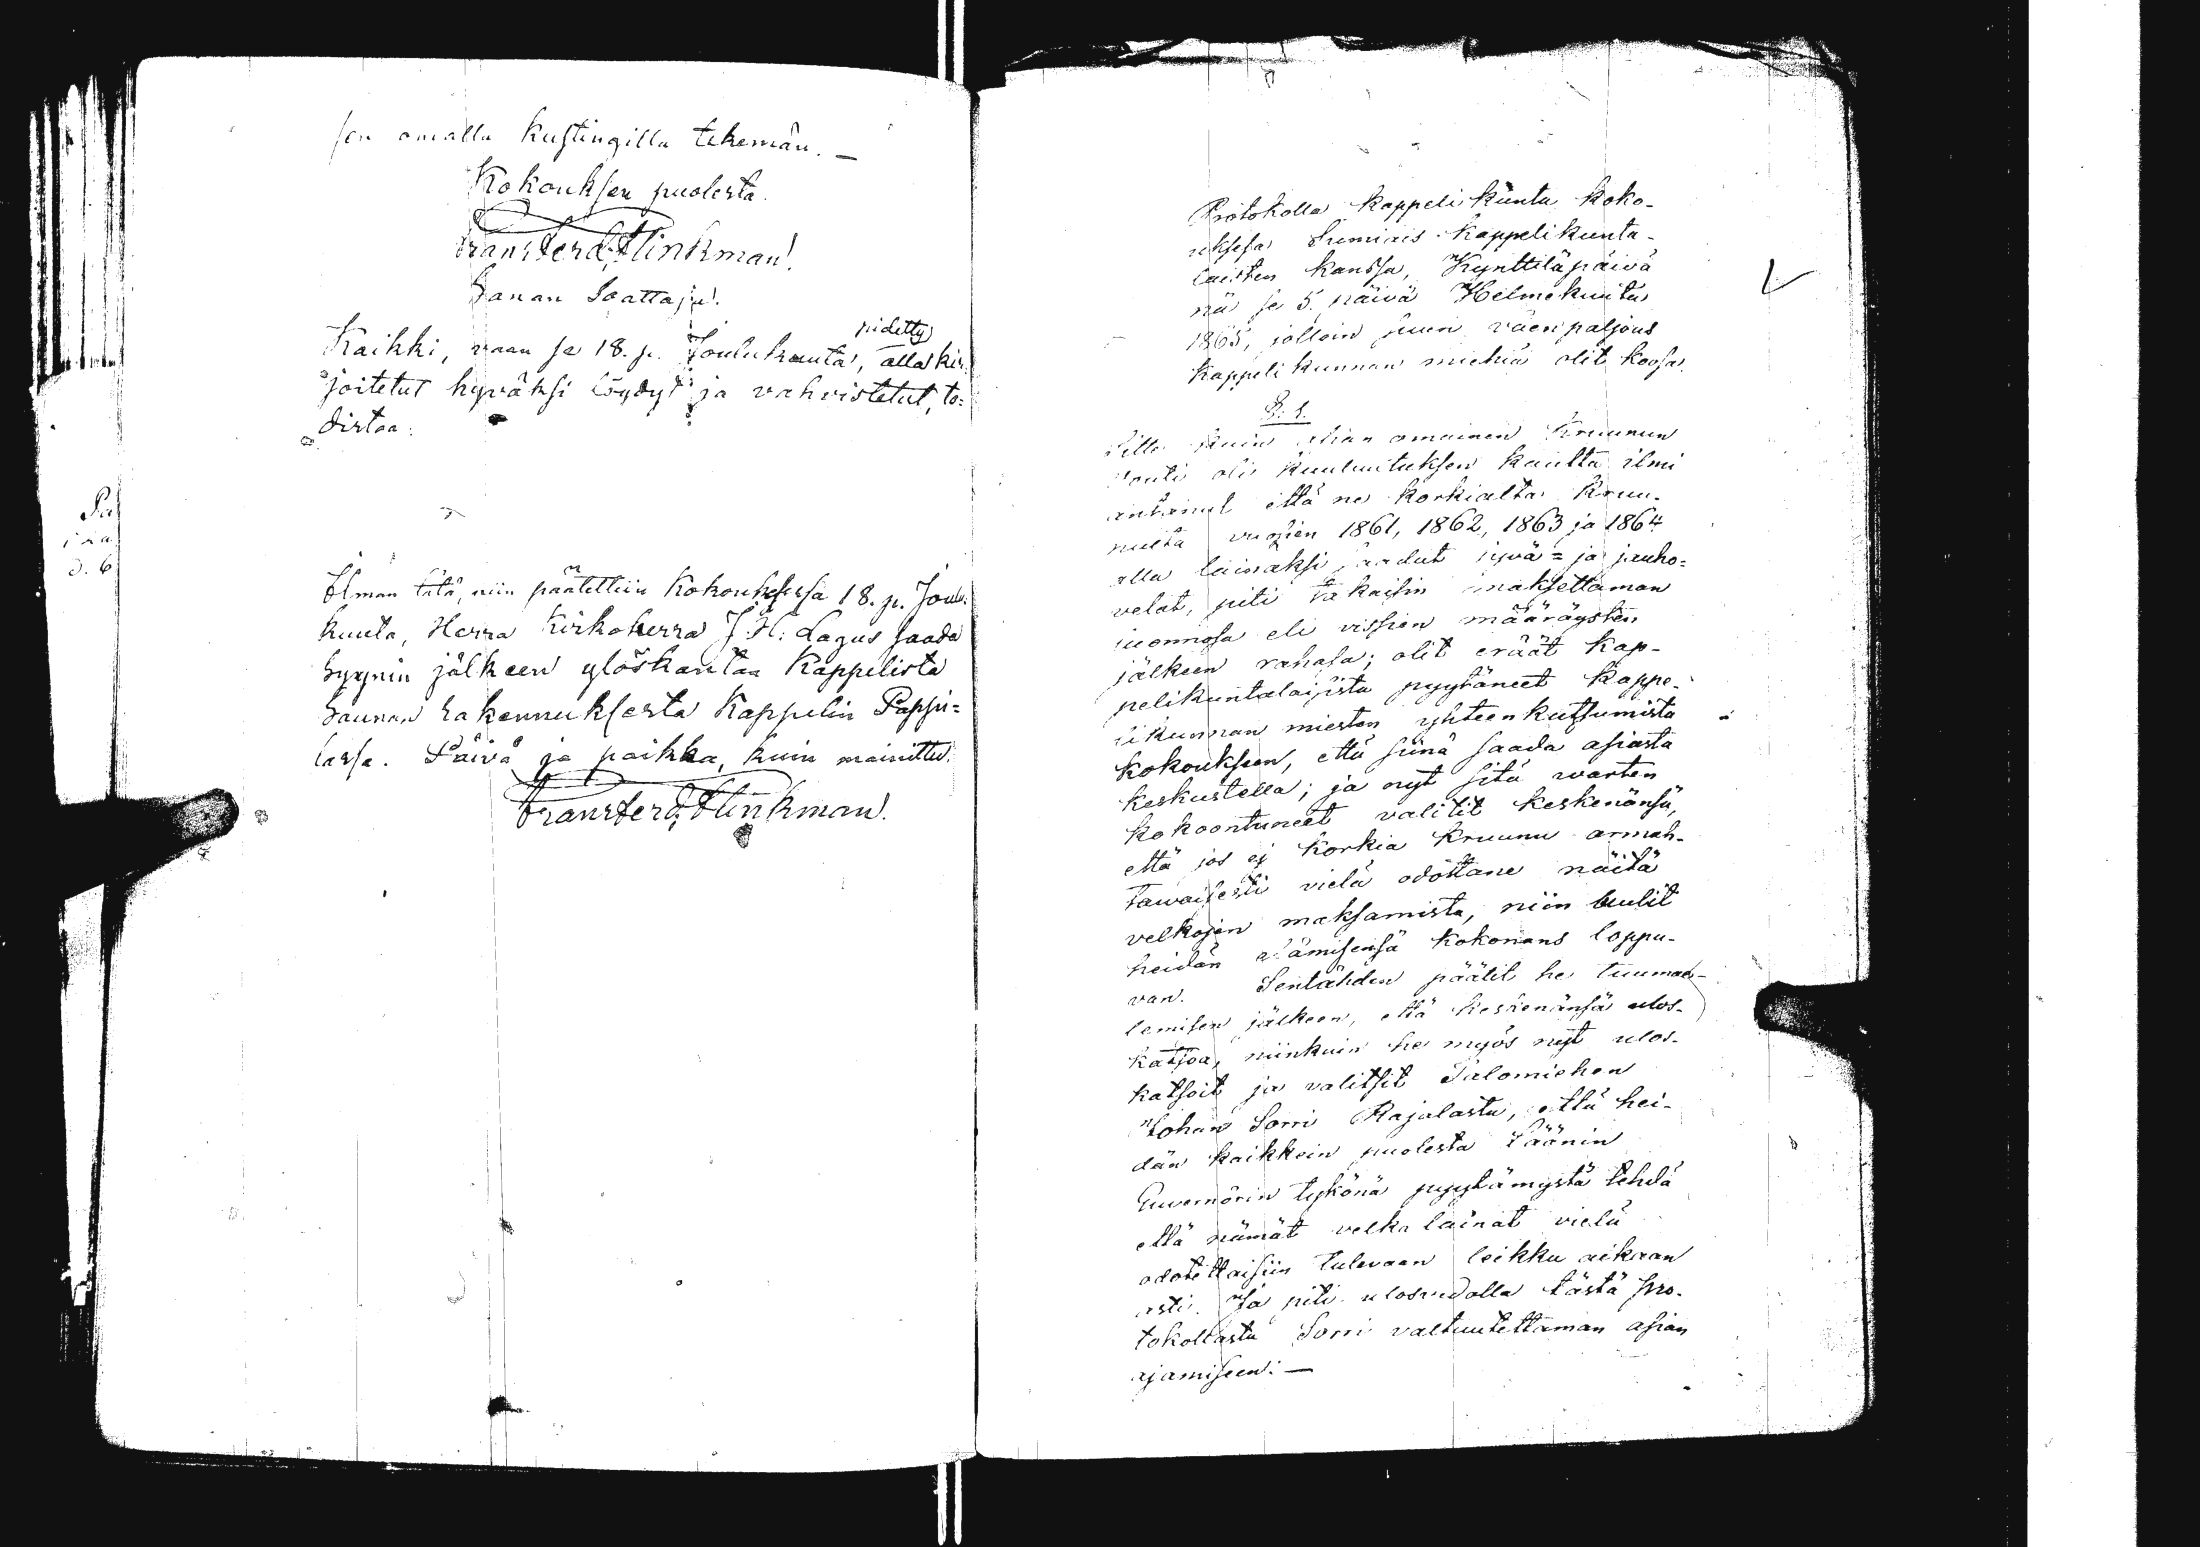 sen omalla kustingilla tekemän. —
Kokouksen puolesta.
Frans Ferd. Flinkman!
Sanan Saattaja!
pidetty
Kaikki, vaan se 18. p. Joulukuuta, alla kir-
joitetut hyväksi löydyt ja vahvistetut, to=
distaa:
Ilman tätä, niin päätettiin Kokouksessa 18. p. Joulu
kuuta, Herra Kirkoherra J. H. Lagus saada
Syynin jälkeen ylöskantaa Kappelista
Saunan rakennuksesta Kappelin Pappi=
lassa. Päivä ja paikka, kuin mainittu.
Frans Ferd. Flinkman!
Protokolla Kappelikunta koko-
uksesa Sumiais Kappelikunta-
laisten kanssa, Kynttiläpäivä
nä se 5. päivä Helmekuuta
1865, jolloin suuri väen paljous
Kappelikunnan miehiä olit koosa.
§. 1.
Sitte kuin asian omainen Kruunun
vouti oli kuuluutuksen kautta ilmi
antanut että ne korkialta Kruu-
nulta vuosien 1861, 1862, 1863 ja 1864
alla lainaksi saadut jyvä= ja jauho=
velat, piti takaisin maksettaman
luonnosa eli vissien määräysten
jälkeen rahasa; olit eräät Kap-
pelikuntalaisista pyytäneet Kappe-
likunnan miesten yhteenkutsumista
Kokoukseen, että siinä saada asiasta
keskustella; ja nyt sitä warten
kokoontuneet valitit keskenänsä,
että jos ej Korkia Kruunu armah-
tawaisesti vielä odottane näitä
velkojen maksamista, niin luulit
heidän elämisensä kokonans loppu-
van. Sentähden päätit he tuumae-
lemisen jälkeen, että keskenänsä ulos-
katsoa, niinkuin he myös nyt ulos-
katsoit ja valitsit Talomiehen
Johan Sorri Rajalasta, että hei-
dän kaikkein puolesta Läänin
Guvernörin tykönä pyytämystä tehdä
että nämät velka lainat vielä
odotettaisiin tulevaan leikku aikaan
asti. Ja piti ulosvedolla tästä pro-
tokollasta Sorri valtuutettaman asian
ajamiseen: —